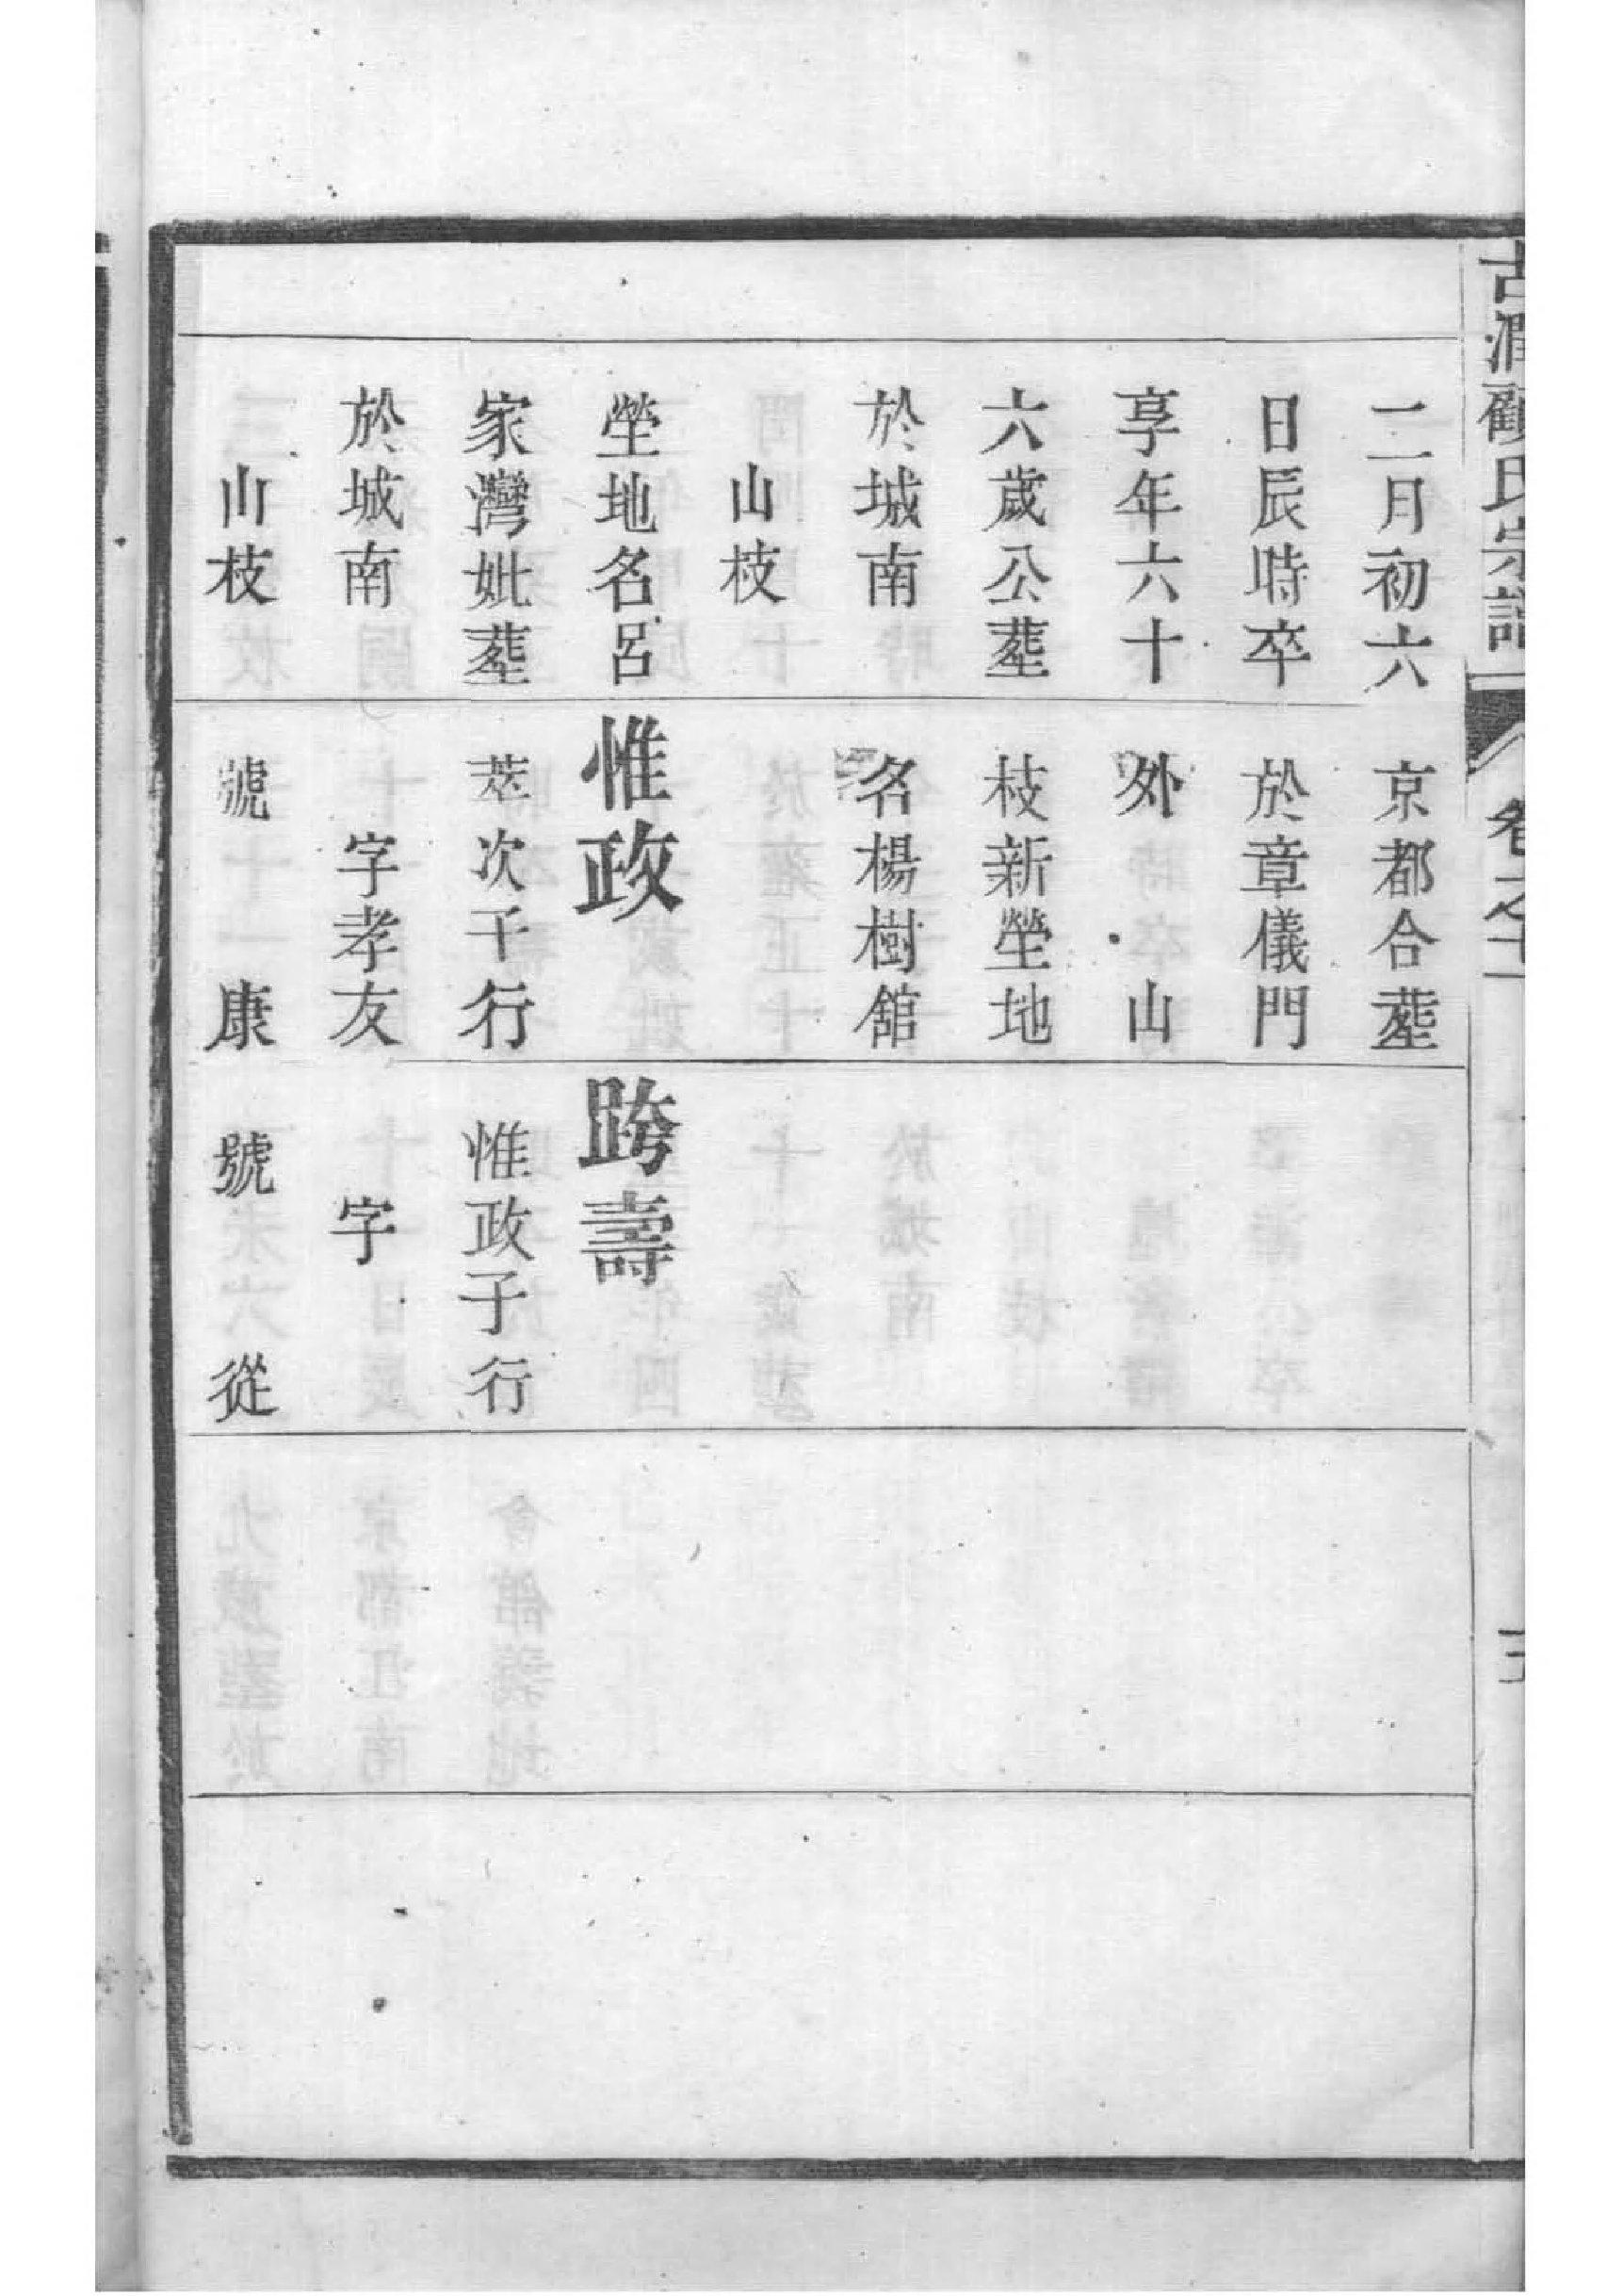 古潤顧氏宗譜
卷之十
二月初六
日辰時卒
享年六十
六歲公塟
於城南
山枝
塋地名呂
家灣妣塟
於城南
山枝
京都合塟
於章儀門
外 山
枝新塋地
名楊樹舘
惟政
次子行
字孝友
號 康
跨壽
惟政子行
字
號 從